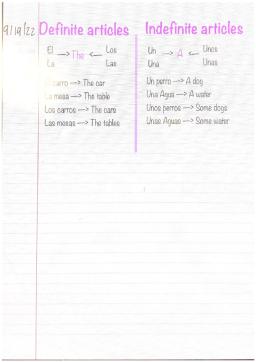 9/19/22 Definite articles Indefinite articles
El Los Un Unos
→ The ← → A ←
La Las Una Unas
carro → The car Un perro → A dog
mesa → The table Una Agua → A water
Los carros → The cars Unos perros → Some dogs
Las mesas → The tables Unas Aguas → Some water